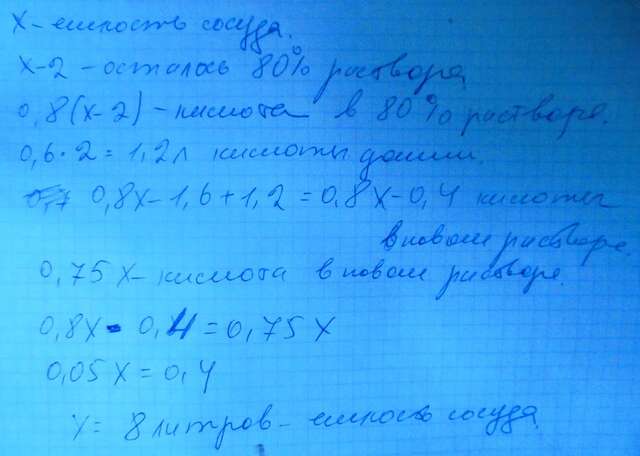 х - емкость сосуда.
х-2 - осталось 80% раствора
0,8(х-2) - кислота в 80% растворе.
0,6·2=1,2л кислоты долили.
0,8х-1,6+1,2=0,8х-0,4 кислоты
в новом растворе.
0,75х - кислота в новом растворе.
0,8х - 0,4=0,75х
0,05х=0,4
х= 8 литров - емкость сосуда